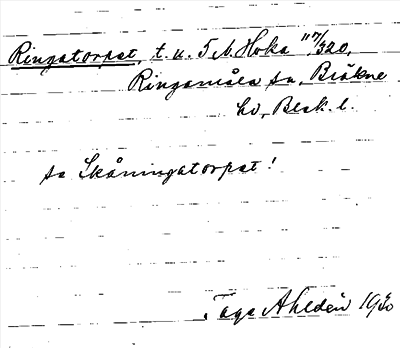 Ringatorpet, t. u. 5 N. Hoka 117/320,
Ringamåla sn, Bräkne
hd, Blek. l.
se Skåningatorpet!
Tage Ahldén 1930